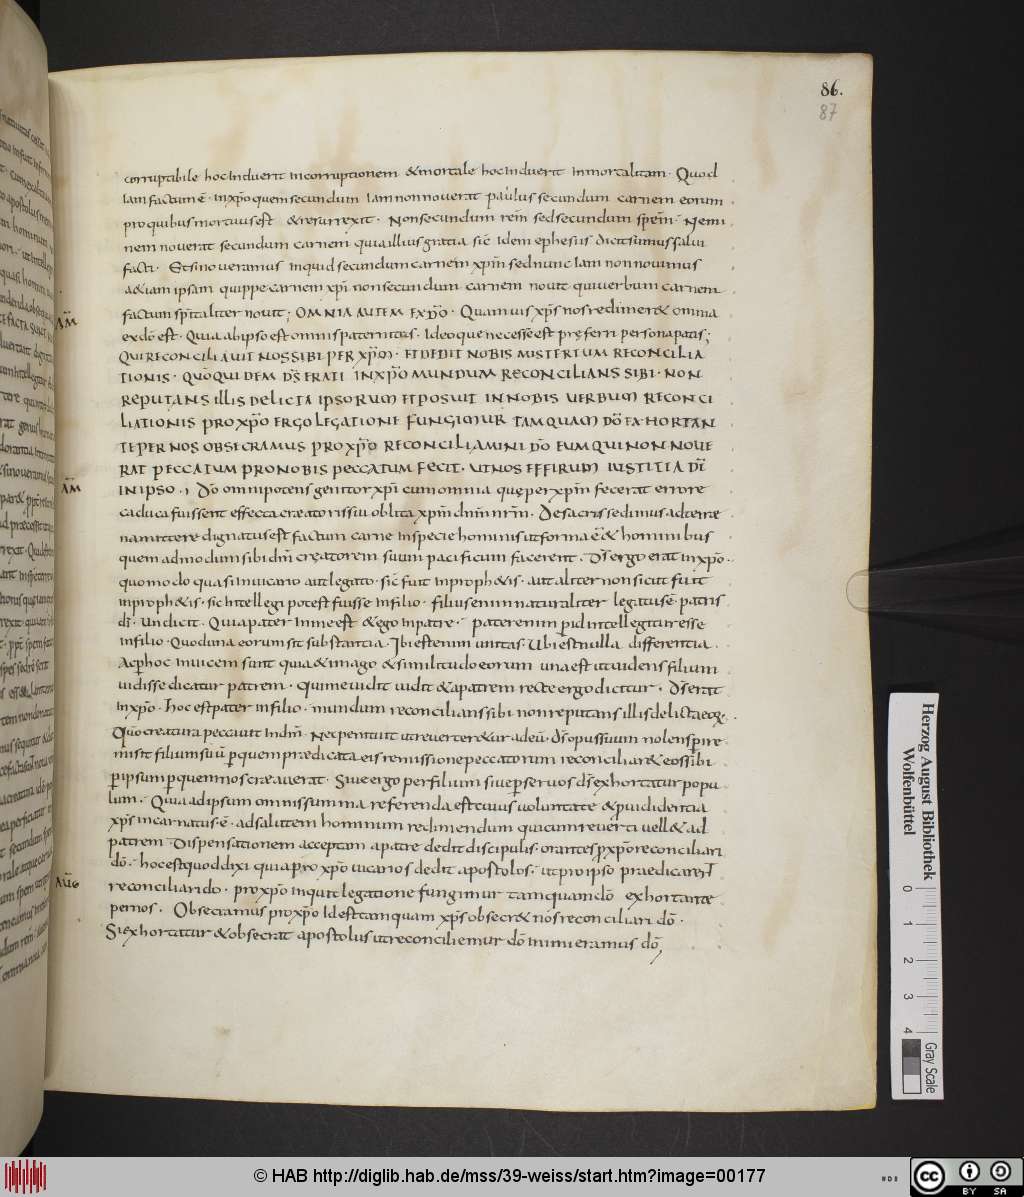 86.
87
corruptibile hoc induerit incorruptionem &mortale hoc induerit inmortalitam. Quod
iam factum ē. inxp̄o quem secundum iam non noverat paulus secundum carnem eorum
pro quibus mortuus est &resurrexit. Non secundum rem sed secundum spem. Nemi
nem noverat secundum carnem quia illius gratia sic̄ idem ephesiis dicit sumus salvi
facti. Etsi noveramus inquid secundum carnem xp̄m sed nunc iam non novimus
&iam ipsam quippe carnem xp̄i non secundum carnem novit qui verbum carnem
AM̄ factum sp̄italiter novit; OMNIA AUTEM EX D̄O. Quamvis xp̄s nos redimer& omnia
ex dō est. Quia ab ipso est omnis paternitas. Ideoque necesse est pręferri persona patris;
QUI RECONCILIAVIT NOS SIBI PER XP̄M. ET DEDIT NOBIS MISTERIUM RECONCILIA
TIONIS. QUŌ QUIDEM D̄S ERAT I INXP̄O MUNDUM RECONCILIANS SIBI. NON
REPUTANS ILLIS DELICTA IPSORUM ET POSUIT IN NOBIS VERBUM RECONCI
LIATIONIS PRO XP̄O ERGO LEGATIONE FUNGIMUR TAMQUAM D̄O EXHORTAN
TE PER NOS OBSECRAMUS PRO XP̄O RECONCILIAMINI D̄O EUM QUI NON NOVE
RAT PECCATUM PRO NOBIS PECCATUM FECIT. UT NOS EFFIRUM IUSTITIA D̄I
AM̄ IN IPSO. D̄O omnipotens genitor xp̄i cum omnia quę per xp̄m fecerat errore
caduca fuissent effecta creatoris sui oblita xp̄m dn̄m nr̄m. De sacris sedinus ad terrę
nam ittere dignatus est factum carne in specie hominis ut forma ē& hominibus
quem admodum sibi dn̄i creatorem suum pacificum facerent. D̄s ergo erat inxp̄o.
quomodo quasi in vicario aut legato. sic̄ fuit in proph&is. aut aliter non sicut fuit
in proph&is. sic intellegi potest fuisse in filio. filius enim naturaliter legatus ē. patris
dī. Unde dicit. Quia pater in me est &ego in patre. pater enim p̄ id intellegitur esse
in filio. Quod una eorum sit substantia. Ibi est enim unitas. Ubi est nulla differentia.
Ac p̄ hoc in vicem sunt quia &imago &similitudo eorum una est ut videns filium
vidisse dicatur patrem. Qui me vidit vidit &patrem recte ergo dicitur. D̄s erat
inxp̄o. hoc est pater in filio. mundum reconcilians sibi non reputans illis delicta eoꝝ.
Quō creatura peccavit in dm̄. Nec penituit ut reverter&ur ad eū. D̄s opus suum nolens p̄ire
misit filium suū p̄ quem prædicata eis remissione peccatorum reconciliar& eos sibi
p̄ ipsum p̄ quem nos creaverat. Sive ergo per filium sive p̄ servos d̄s exhortatur popu
lum. Quia ad ipsum omnis summa referenda est cuius voluntate &p̄videntia
xp̄s incarnatus ē. ad salutem hominum redimendum qui cum reverti vell& ad
patrem. Dispensationem acceptam a patre dedit discipulis. orantes p̄ xp̄o reconciliari
AUG dō. hoc est quod dixi quia pro xp̄o vicarios dedit apostolos. ut pro ipso praedicarent
reconciliari dō. pro xp̄o inquit legatione fungimur tamquam dō exhortante
per nos. Obsecramus pro xp̄o. Id est tamquam xp̄s obsecr& nos reconciliari dō.
Si exhortatur &obsecrat apostolus ut reconciliemur dō inimi eramus dō
Herzog August Bibliothek
Wolfenbüttel
0 1 2 3 4
Gray Scale
© HAB http://diglib.hab.de/mss/39-weiss/start.htm?image=00177
cc BY SA